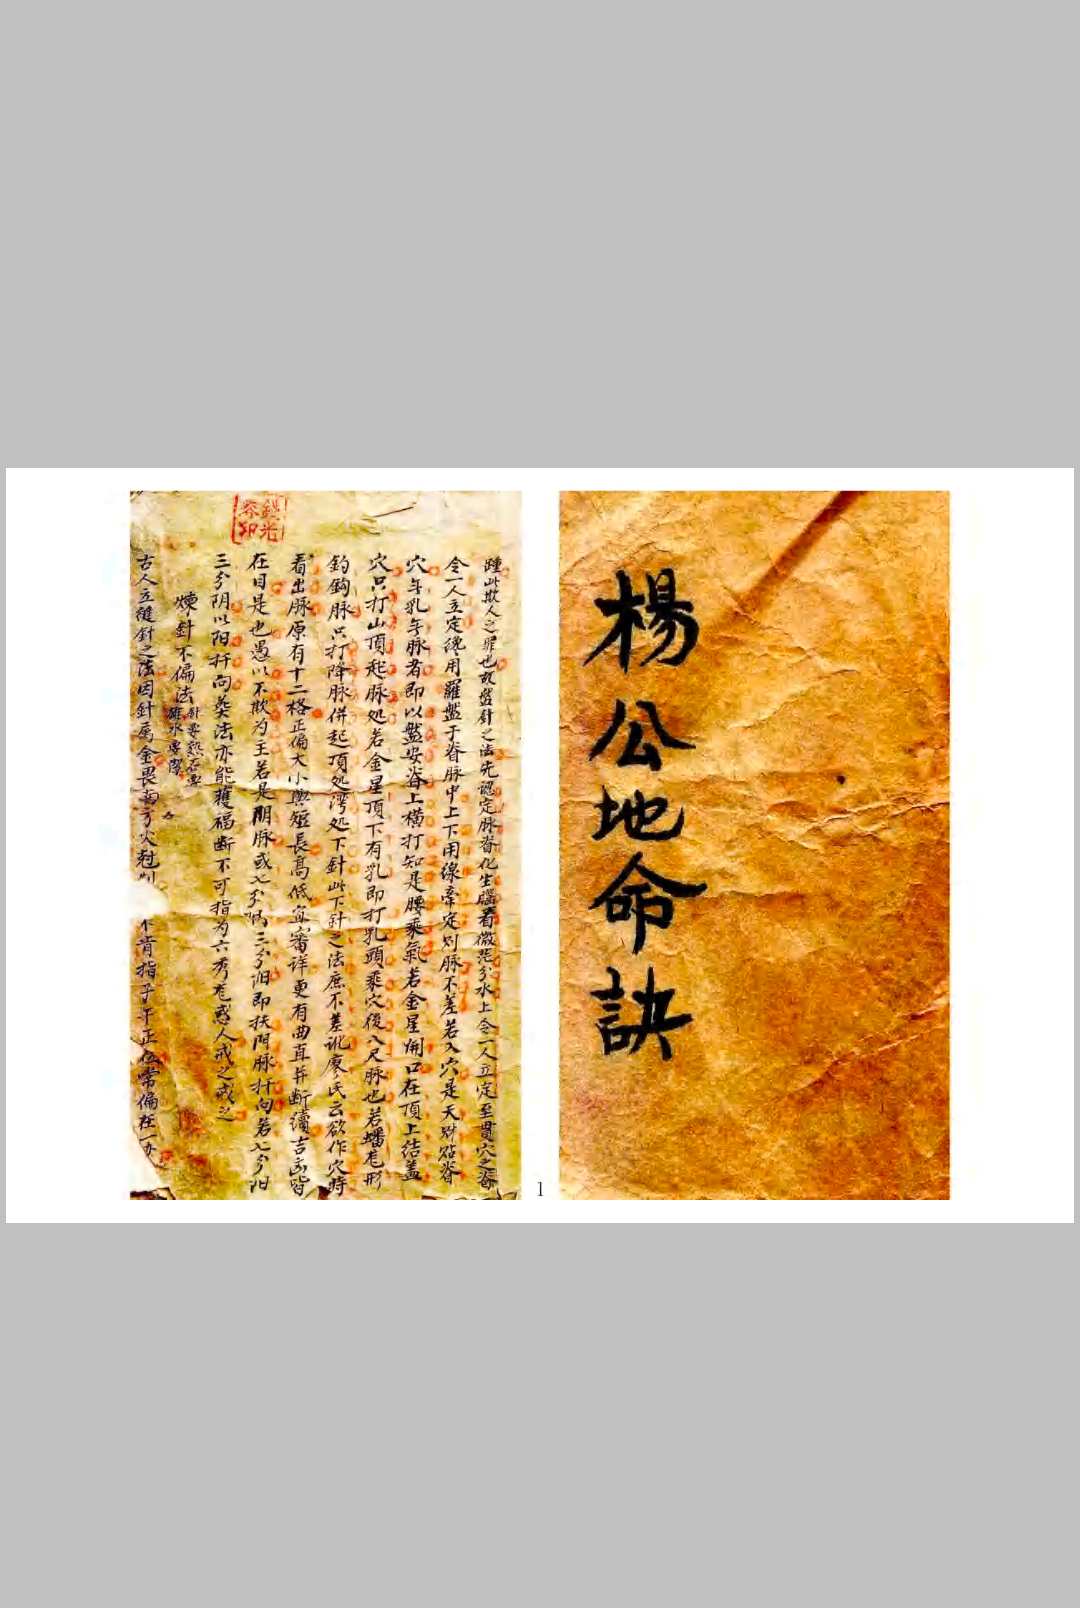 楊公地命訣
踵此欺人之罪也故盤針之法先認定脉脊化生腦看微茫分水上令一人立定至貫穴之脊
令一人立定纔用羅盤于脊脉中上下用線牽定則脉不差若入穴是天財點脊
穴与乳与脉者即以盤安脊上横打知是腰乘氣若金星開口在頂上结盖
穴只打山頂起脉処若金星頂下有乳即打乳頭乘穴後八尺脉也若蟠龙形
釣鈎脉只打降脉併起頂処湾処下針此下針之法庶不差訛廖氏云欲作穴時
看出脉原有十二格正偏大小與短長高低宜審详更有曲直并断續吉凶皆
在目是也愚以不欺为主若是阴脉或七分阴三分阳即扶阴脉扦向若七分阳
三分阴以阳扦向葵法亦能獲福断不可指为六秀龙惑人戒之戒之
煉針不偏法
針要熱石要
雄水要
古人立縫針之法因針属金畏南方火尅制 不肯指子午正位常偏在一
鏡光
印
1